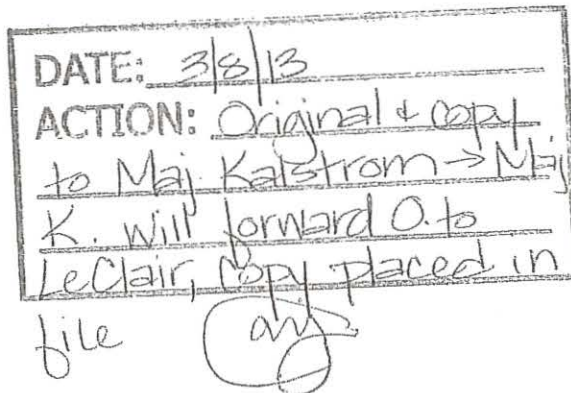 DATE: 3/8/13
ACTION: Original & copy
to Maj. Kalstrom → Maj
K. will forward O. to
LeClair, copy placed in
file